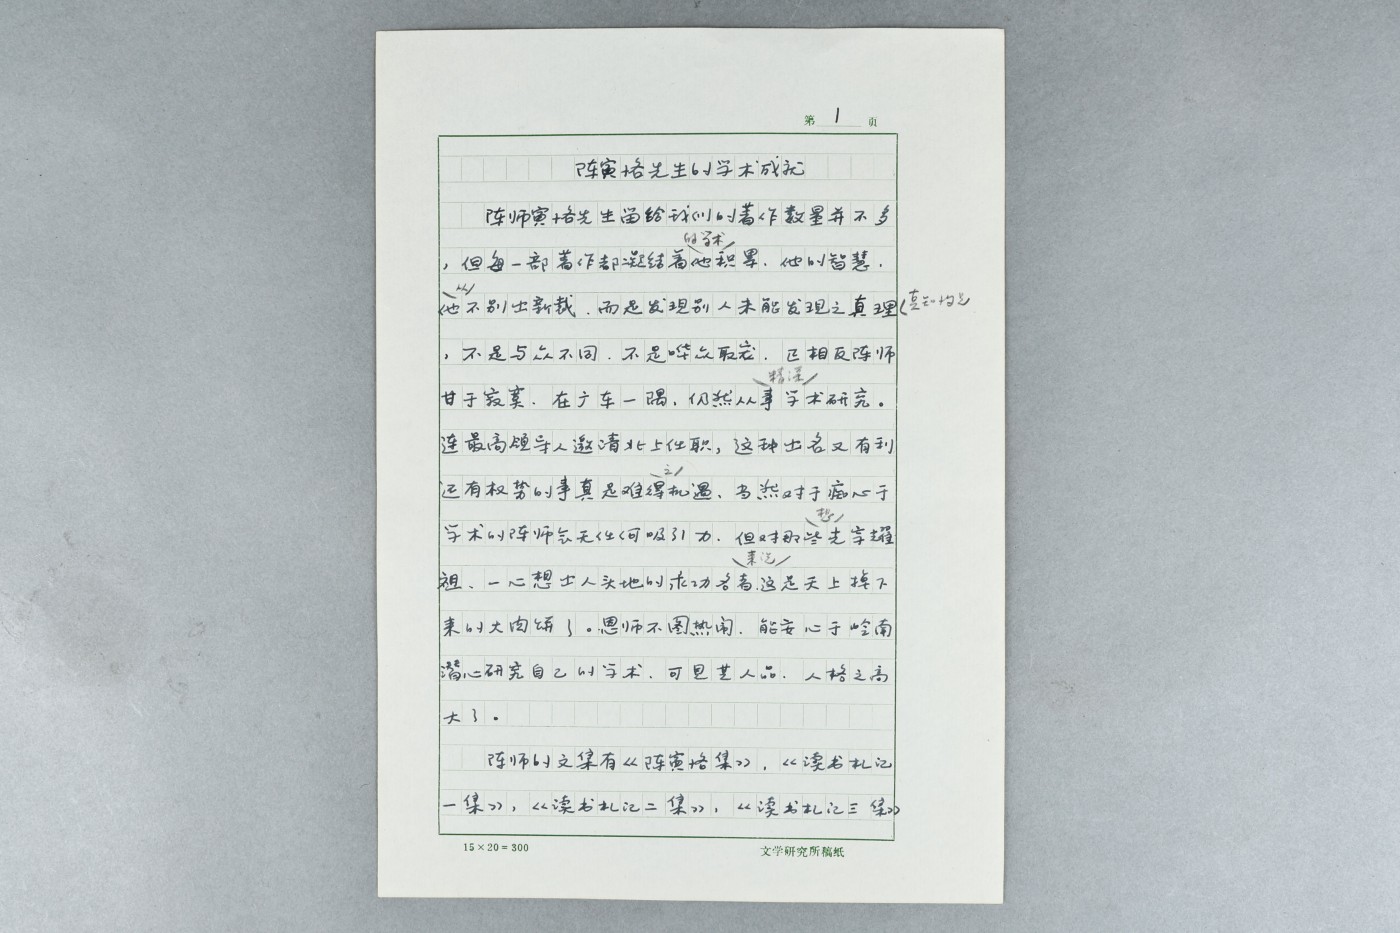 第 1 页
陈寅恪先生的学术成就
陈师寅恪先生留给我们的著作数量并不多
的学术
，但每一部著作都凝结着他积累、他的智慧、
他不别出新裁、而是发现别人未能发现之真理
，不是与众不同、不是哗众取宠、正相反陈师
精深
甘于寂寞、在广东一隅、仍然从事学术研究。
连最高领导人邀请北上任职，这种出名又有利
之
还有权势的事真是难得机遇、当然对于痴心于
想
学术的陈师会无任何吸引力、但对那些光宗耀
来说
祖、一心想出人头地的求功名者、这是天上掉下
来的大肉饼了。恩师不图热闹、能安心于岭南
潜心研究自己的学术、可见其人品、人格之高
大了。
陈师的文集有《陈寅恪集》，《读书札记
一集》，《读书札记二集》，《读书札记三集》
15×20=300
文学研究所稿纸